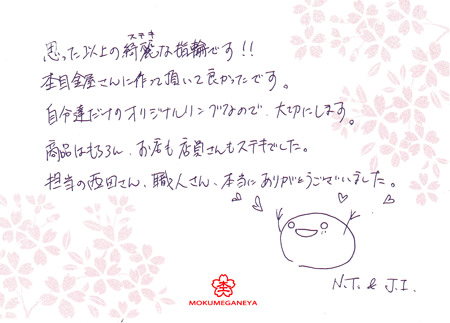 思った以上の綺麗な指輪です!!
ステキ
杢目金屋さんに作って頂いて良かったです。
自分達だけのオリジナルリングなので、大切にします。
商品はもちろん、お店も店員さんもステキでした。
担当の西田さん、職人さん、本当にありがとうございました。
N.T. & J.I.
MOKUMEGANEYA